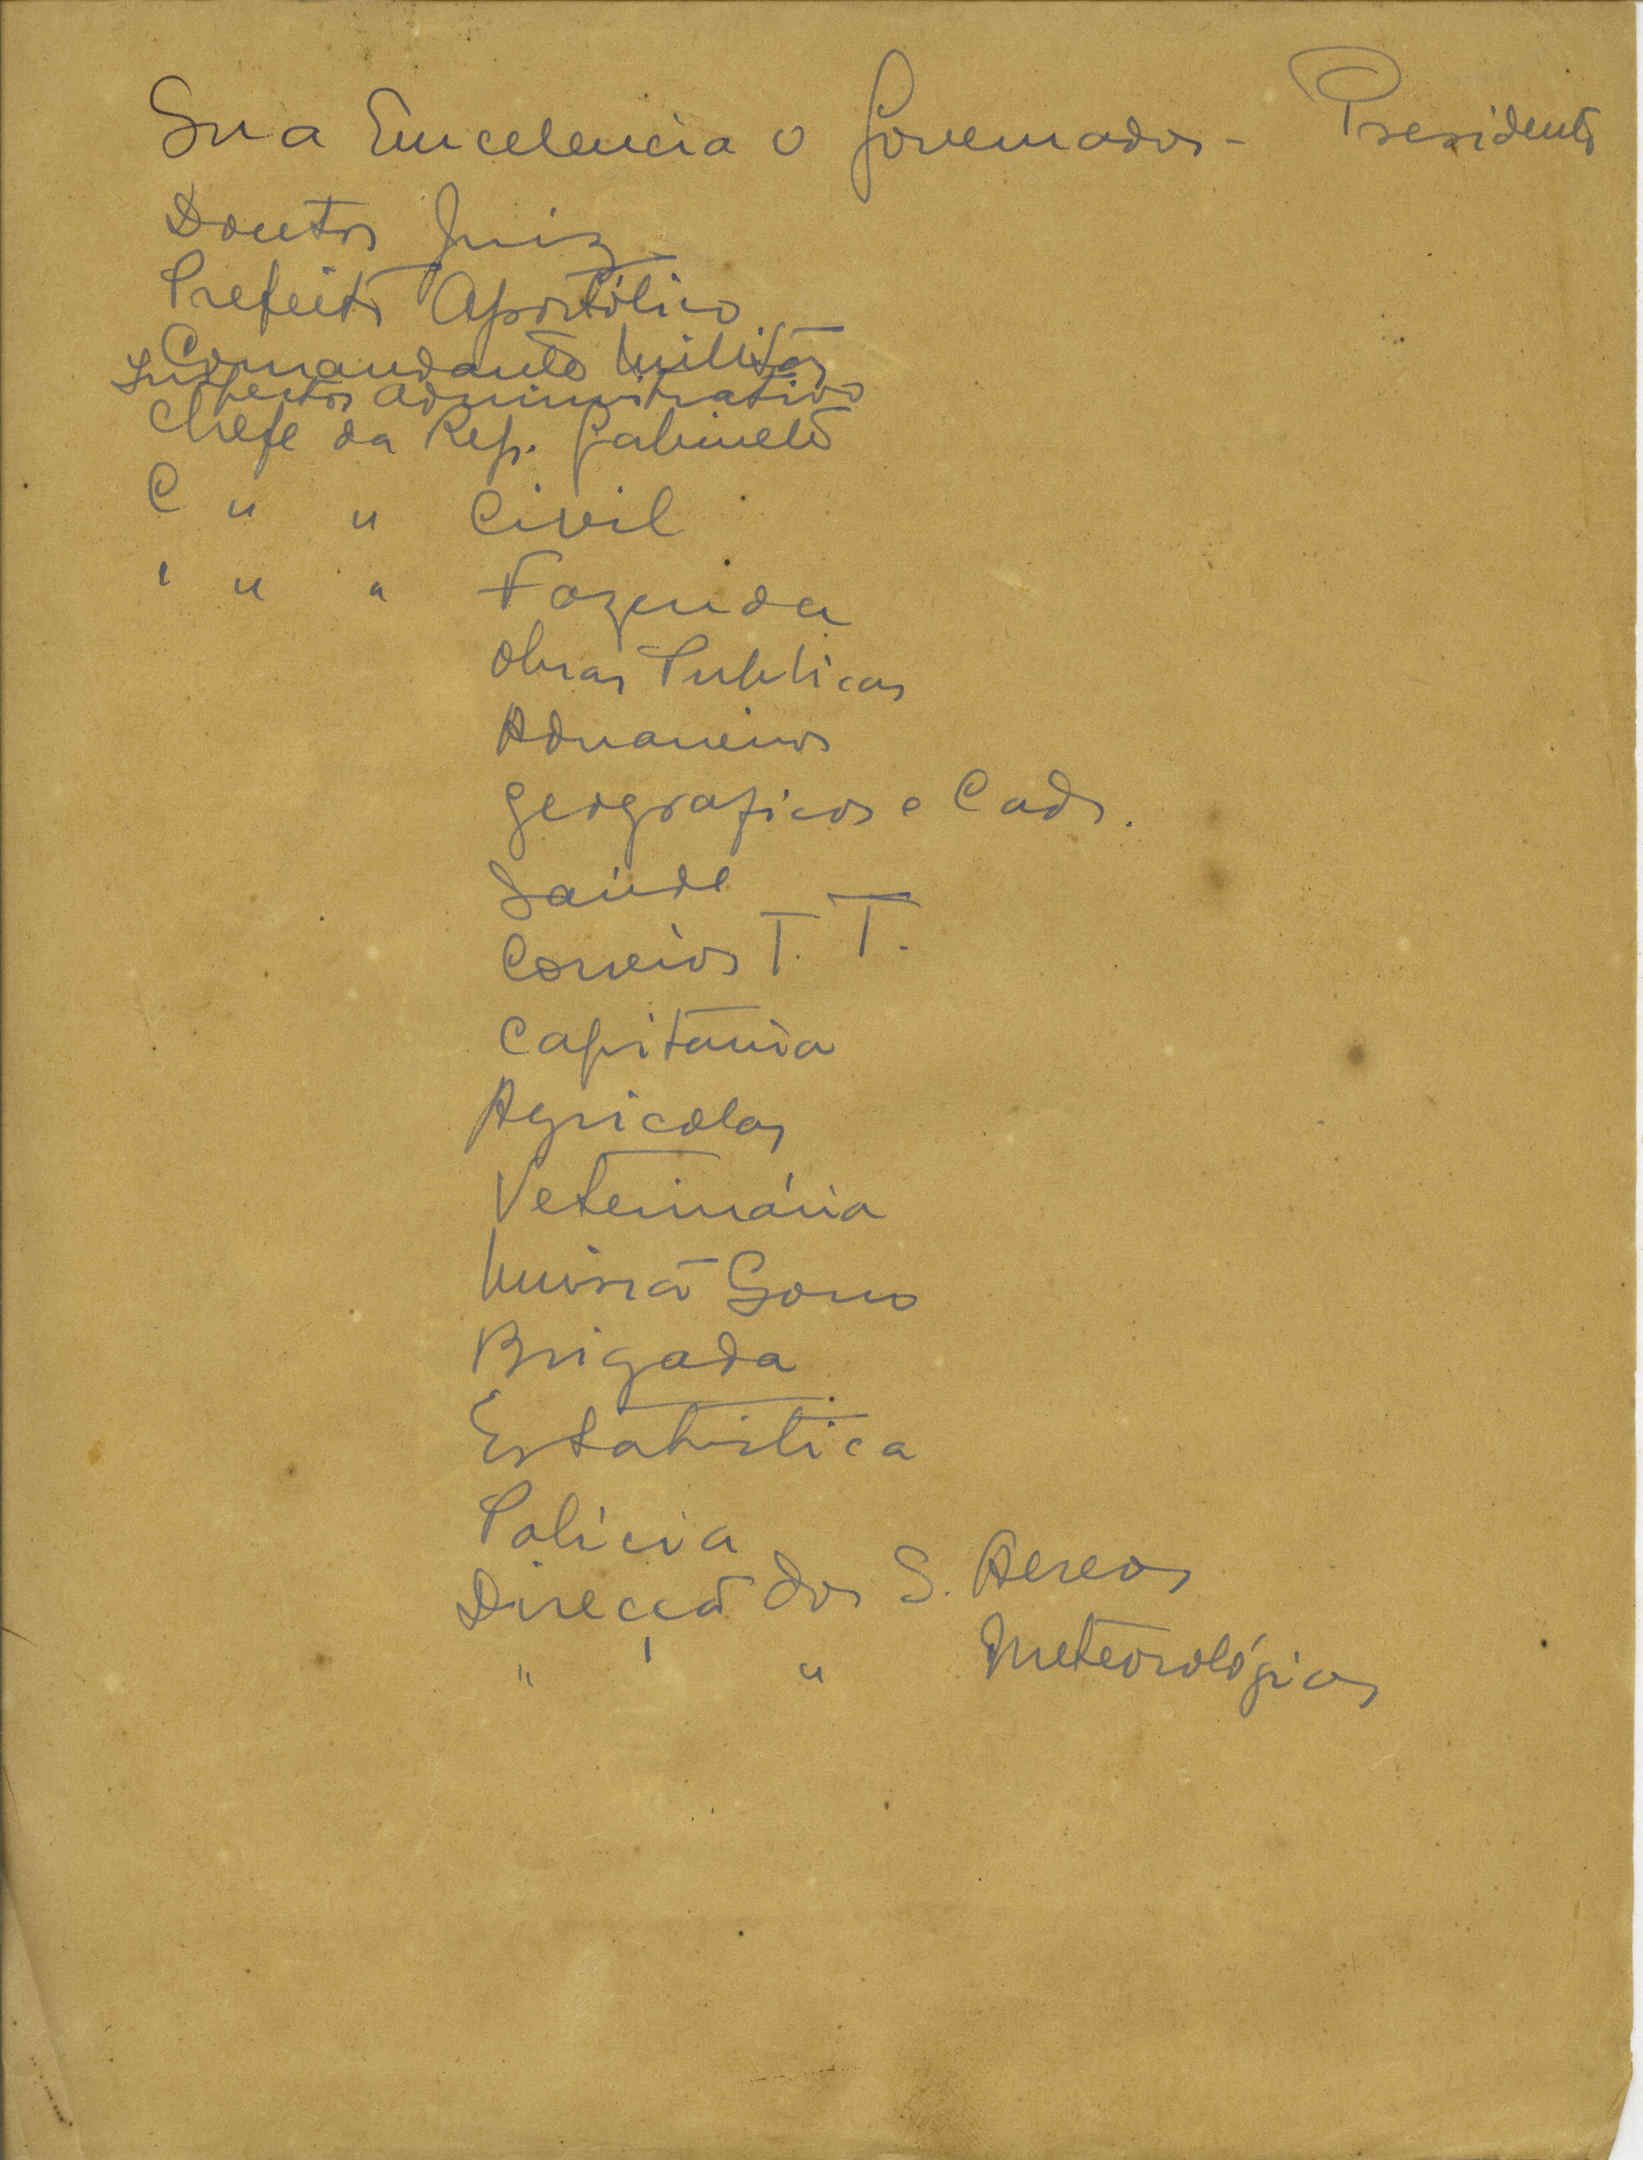 Sua Emcelencia o Governador - Presidente
Doutor Juiz
Prefeito Apostólico
Comandante Militar
Inspector Administrativo
Chefe da Rep. Gabinete
C " " Civil
' " " Fazenda
Obras Publicas
Aduaneiros
Geograficos e Cads.
Saúde
Correios T. T.
Capitania
Agricolas
Veterinária
Missão Sono
Brigada
Estatistica
Policia
Direcção dos S. Aereos
" ' " Meteorológicos